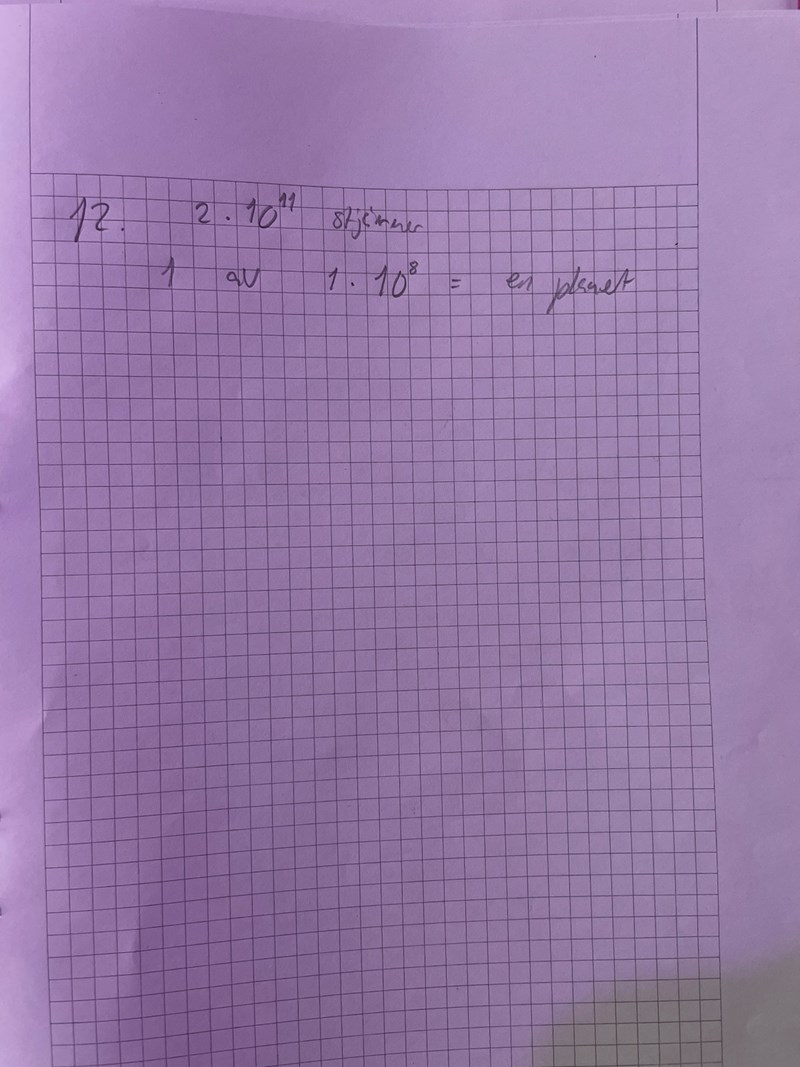 12. 2 · 10¹¹ stjerner
1 av 1 · 10⁸ = en planet